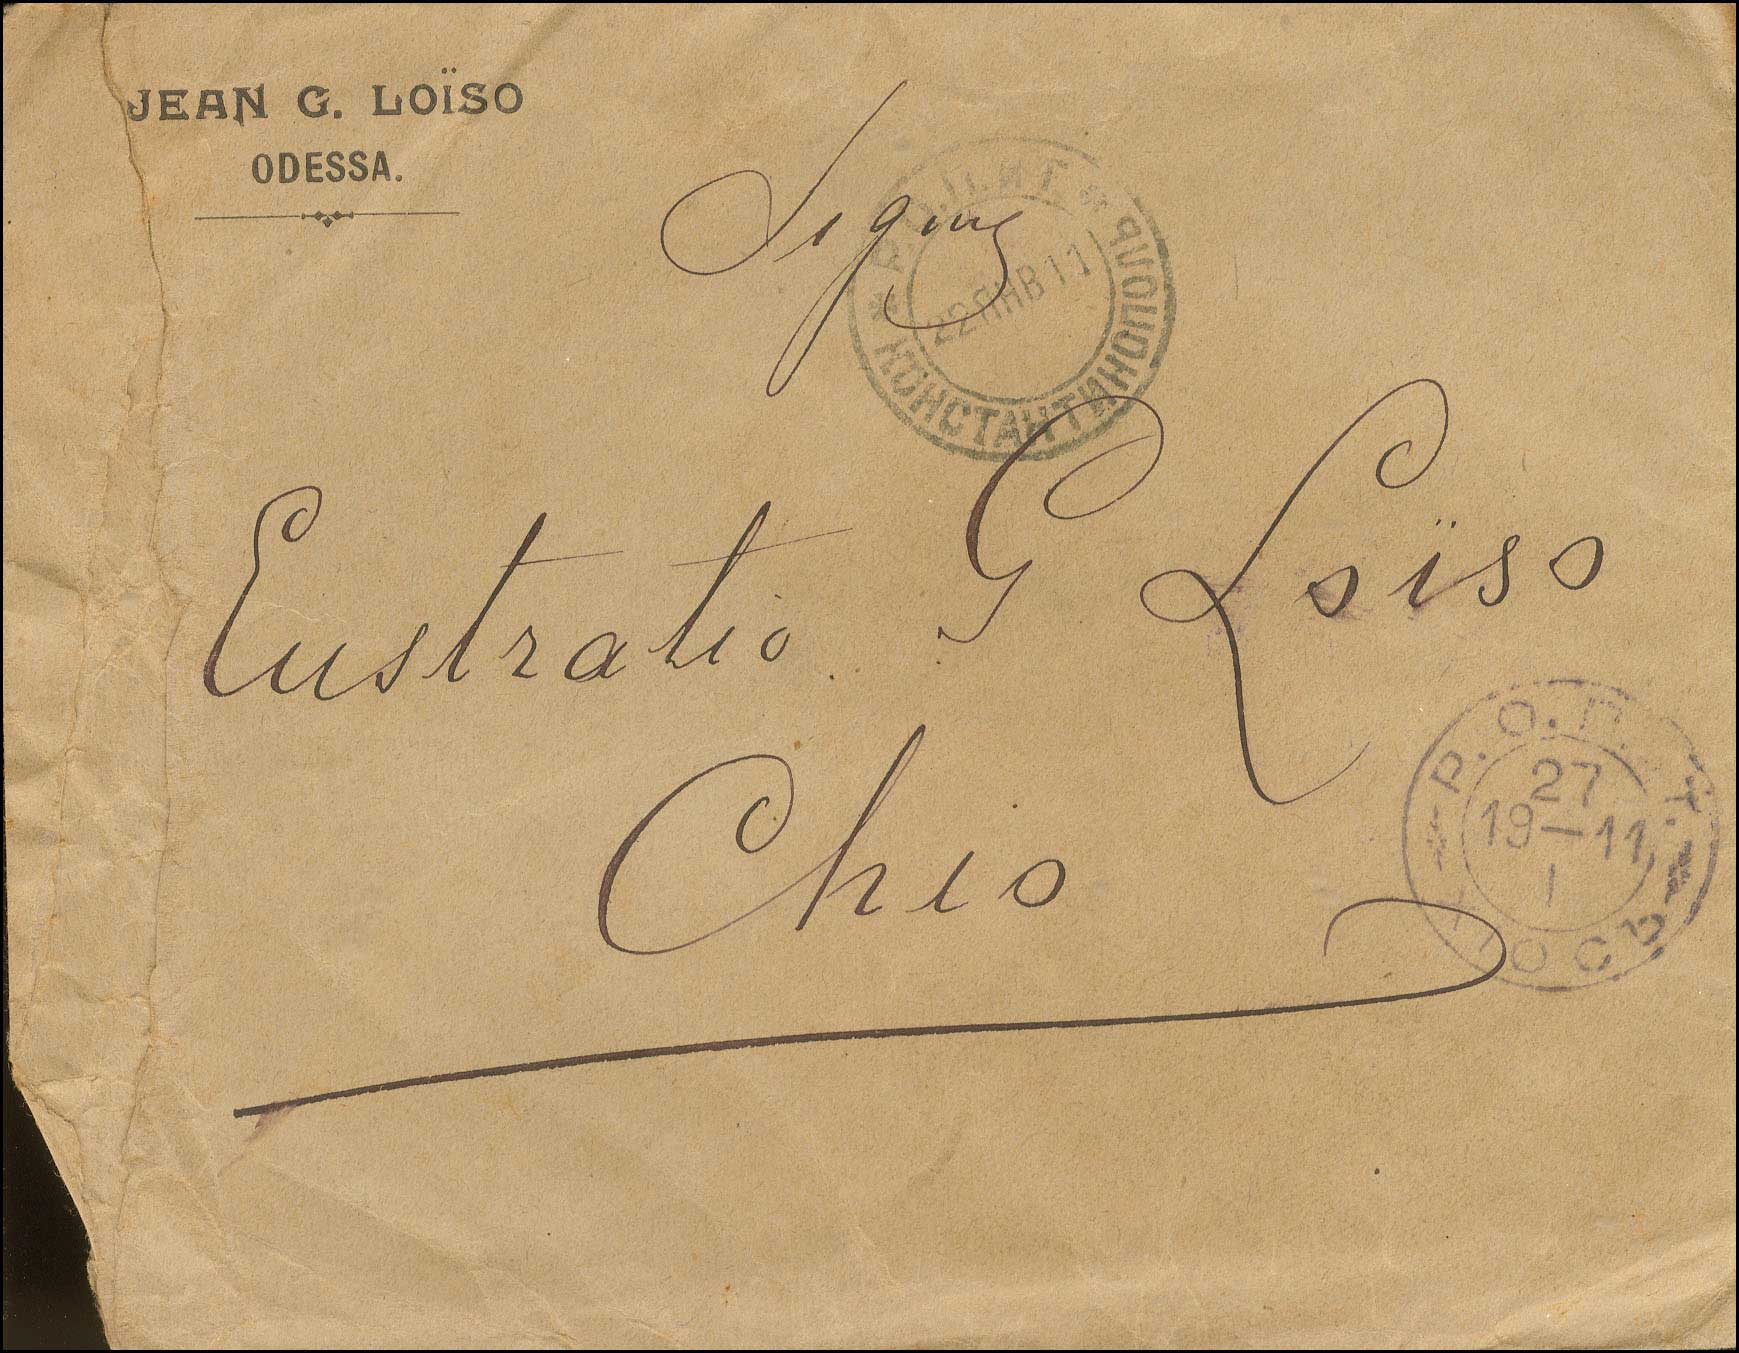 JEAN G. LOÏSO
ODESSA.
Sigre
Р.О.П.иТ. * КОНСТАНТИНОПОЛЬ *
22 ЯНВ 11
Eustratio G Loïso
Chio
Р.О.П.и.Т.
27
19-11
I
ХІОСЪ